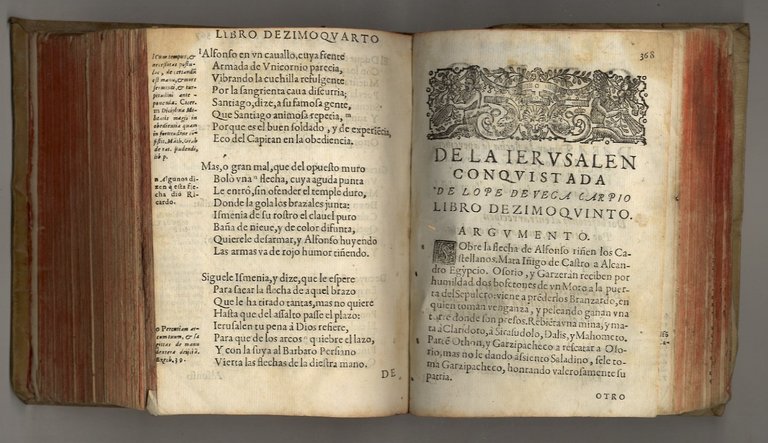 LIBRO DEZIMOQVARTO
Alfonso en vn cauallo, cuya frente
Armada de Vnicornio parecia,
Vibrando la cuchilla refulgente
Por la sangrienta caua discurria;
Santiago, dize, a su famosa gente,
Que Santiago animosa repetia,
Porque es el buen soldado, y de experiẽcia,
Eco del Capitan en la obediencia.
Mas, o gran mal, que del opuesto muro
Bolò vna flecha, cuya aguda punta
Le entrò, sin ofender el temple duro,
Donde la gola los brazales junta:
Ismenia de su rostro el clauel puro
Baña de nieue, y de color difunta,
Quierele desarmar, y Alfonso huyendo
Las armas va de rojo humor tiñendo.
Siguele Ismenia, y dize, que le espere
Para sacar la flecha de aquel brazo
Que le ha tirado tantas, mas no quiere
Hasta que del assalto passe el plazo:
Ierusalen tu pena à Dios refiere,
Para que de los arcos quiebre el lazo,
Y con la suya al Barbaro Persiano
Vierta las flechas de la diestra mano.
DE
n Algunos dizen
q̃ esta flecha
dio Ricardo.
368
DE LA IERVSALEN
CONQVISTADA
DE LOPE DE VEGA CARPIO
LIBRO DEZIMOQVINTO.
ARGVMENTO.
SObre la flecha de Alfonso riñen los Castellanos.
Mata Iñigo de Castro a Alcandro
Egypcio. Osorio, y Garzeran reciben por
humildad dos bofetones de vn Moro a la puerta
del Sepulcro: viene a prẽderlos Branzardo, en
quien toman venganza, y peleando ganan vna
torre donde son presos. Rebiẽta vna mina, y mata
à Claridoro, à Sirasudolo, Dalis, y Mahometo.
Parte Othon, y Garzipacheco a rescatar a Osorio,
mas no le dando assiento Saladino, se le toma
Garzipacheco, honrando valerosamente su
patria.
OTRO